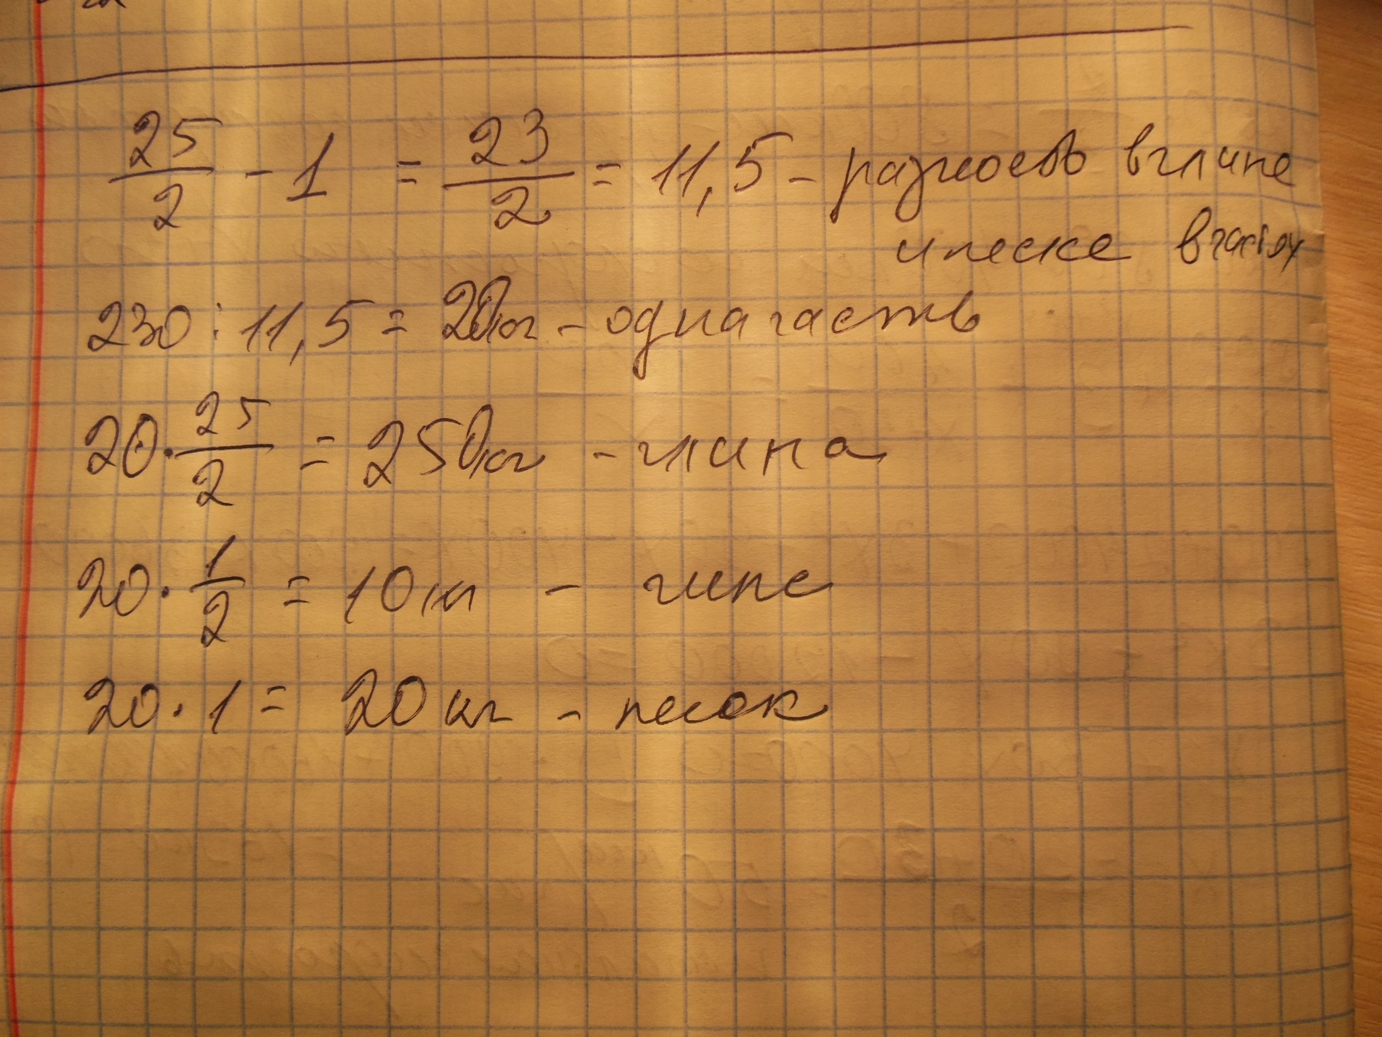 25/2 - 1 = 23/2 = 11,5 - разность в глине
и песке в частях
230 : 11,5 = 20кг - одна часть
20 · 25/2 = 250кг - глина
20 · 1/2 = 10кг - гипс
20 · 1 = 20кг - песок